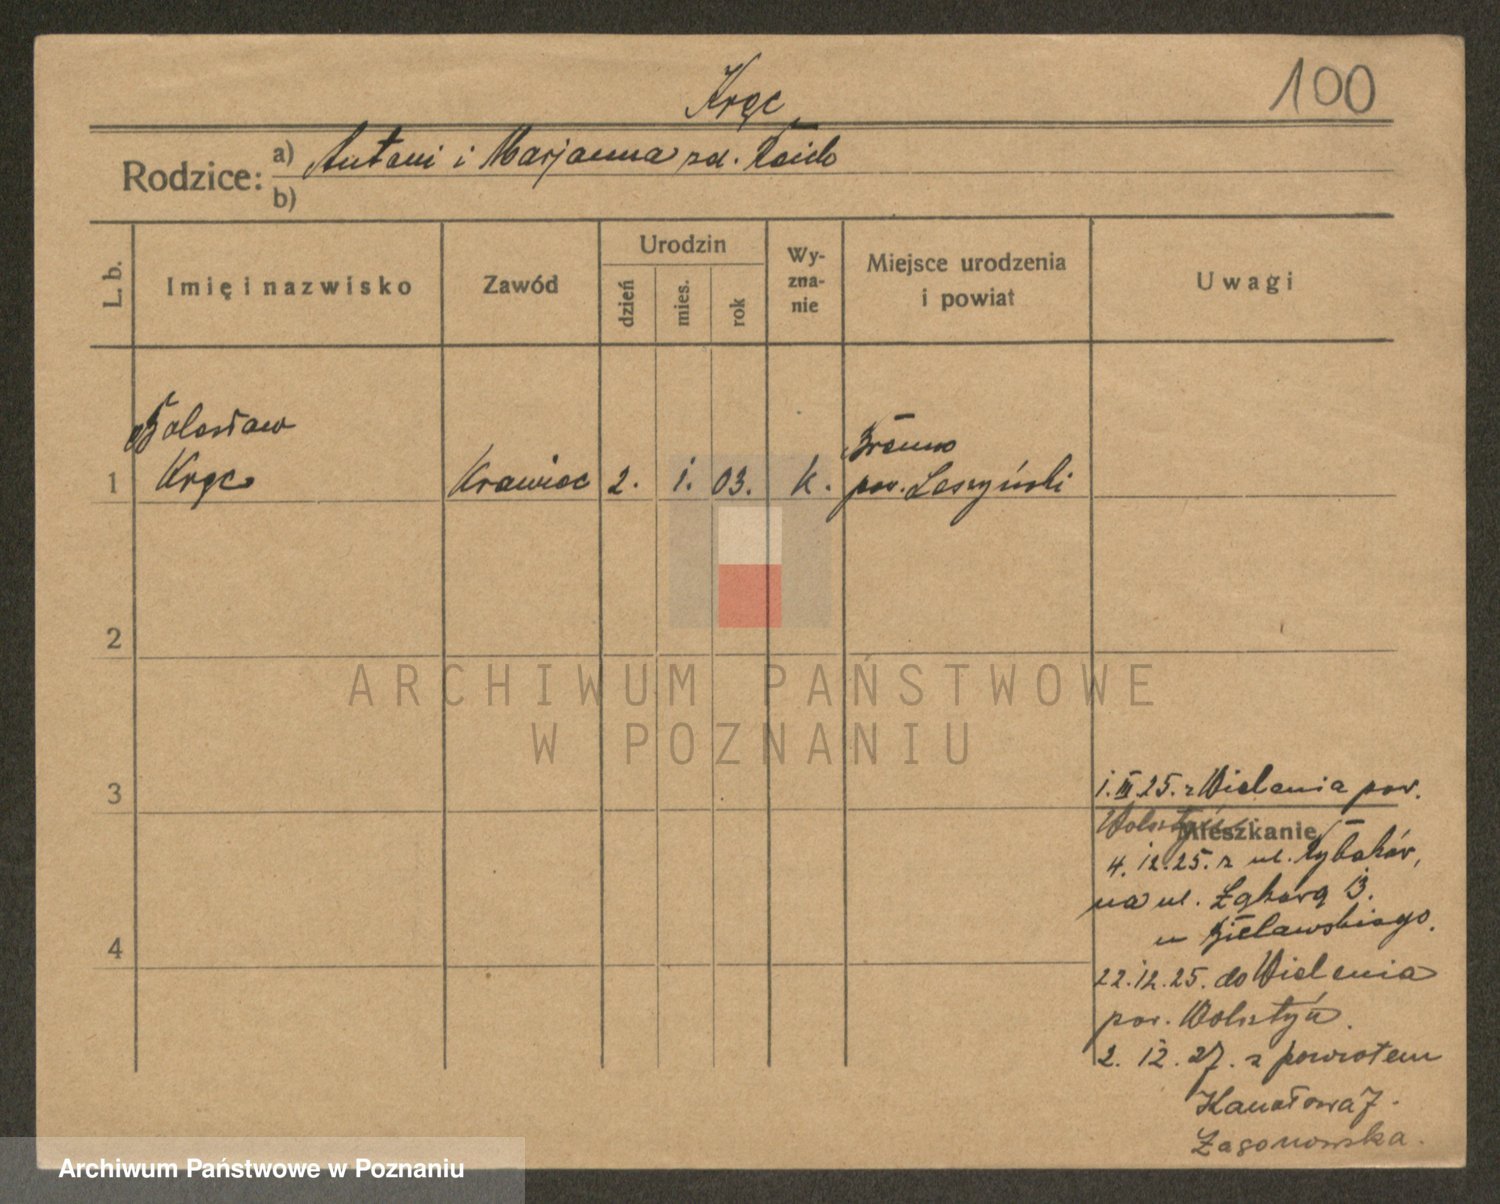 Kręc
100
Rodzice: a) Antoni i Marjanna zd.
b)
L. b. Imię i nazwisko Zawód Urodzin dzień mies. rok Wy-zna-nie Miejsce urodzenia i powiat Uwagi
Bolesław
1 Kręc Krawiec 2. 1. 03. k. pow. Leszyński
2
ARCHIWUM PAŃSTWOWE
W POZNANIU
3
1. III 25. z Wielenia pow.
Wolsztyn
Mieszkanie
4. 12. 25. z ul. Rybaków,
na ul. Łąkową 13.
u Bielawskiego.
4
22. 12. 25. do Wielenia
pow. Wolsztyn.
2. 12. 27. z powrotem
Kanałowa 7.
Zagonowska.
Archiwum Państwowe w Poznaniu